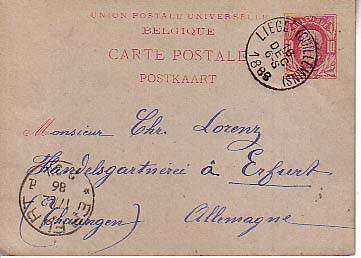 UNION POSTALE UNIVERSELLE
BELGIQUE
CARTE POSTALE
POSTKAART
LIEGE (GUILLEMINS)
DEC
6-S
1886
Monsieur Chr. Lorenz
Handelsgartnerei à Erfurt
(Thüringen) Allemagne
ERFURT
17/12
86